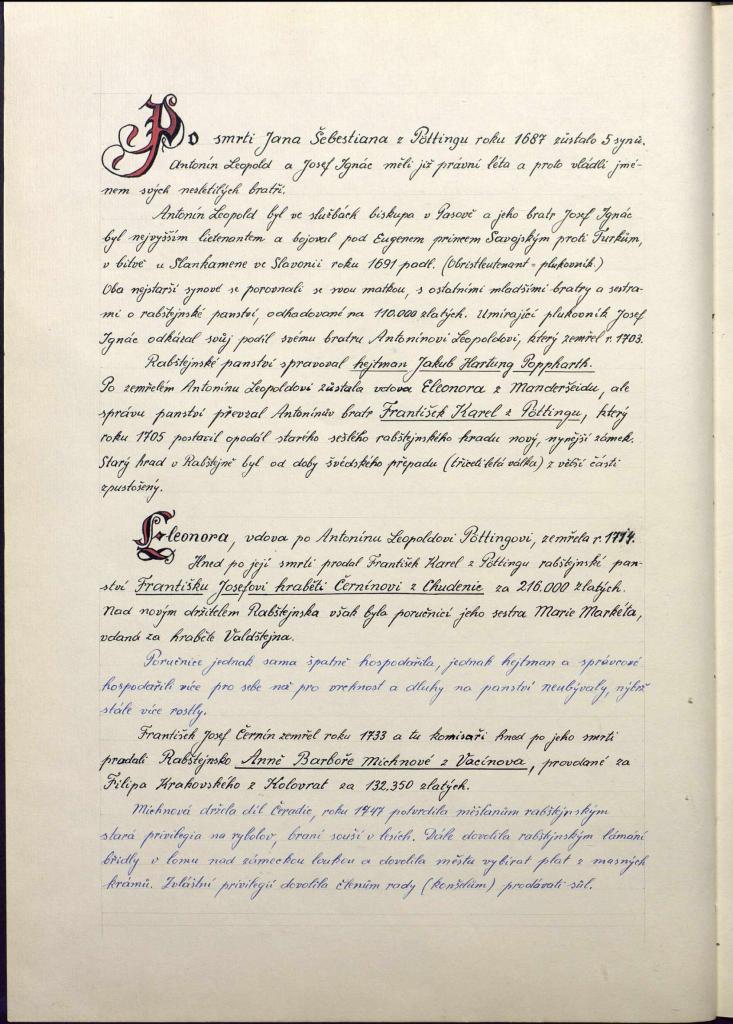 Po smrti Jana Šebestiana z Pöttingu roku 1687 zůstalo 5 synů.
Antonín Leopold a Josef Ignác měli již právní léta a proto vládli jmé-
nem svých nezletilých bratří.
Antonín Leopold byl ve službách biskupa v Pasově a jeho bratr Josef Ignác
byl nejvyšším lietenantem a bojoval pod Eugenem princem Savojským proti Turkům,
v bitvě u Slankamene ve Slavonii roku 1691 padl. (Obristleutenant = plukovník.)
Oba nejstarší synové se porovnali se svou matkou, s ostatními mladšími bratry a sestra-
mi o rabštejnské panství, odhadované na 110.000 zlatých. Umírající plukovník Josef
Ignác odkázal svůj podíl svému bratru Antonínovi Leopoldovi, který zemřel r. 1703.
Rabštejnské panství spravoval hejtman Jakub Hartung Poppharth.
Po zemřelém Antonínu Leopoldovi zůstala vdova Eleonora z Manderšeidu, ale
správu panství převzal Antonínův bratr František Karel z Pöttingu, který
roku 1705 postavil opodál starého sešlého rabštejnského hradu nový, nynější zámek.
Starý hrad v Rabštejně byl od doby švédského přepadu (třicetiletá válka) z větší části
zpustošený.
Eleonora, vdova po Antonínu Leopoldovi Pöttingovi, zemřela r. 1714.
Hned po její smrti prodal František Karel z Pöttingu rabštejnské pan-
ství Františku Josefovi hraběti Černínovi z Chudenic za 216.000 zlatých.
Nad novým držitelem Rabštejnska však byla poručnicí jeho sestra Marie Markéta,
vdaná za hraběte Valdštejna.
Poručnice jednak sama špatně hospodařila, jednak hejtman a správcové
hospodařili více pro sebe než pro vrchnost a dluhy na panství neubývaly, nýbrž
stále více rostly.
František Josef Černín zemřel roku 1733 a tu komisaři hned po jeho smrti
prodali Rabštejnsko Anně Barboře Michnové z Vacínova, provdané za
Filipa Krakovského z Kolovrat za 132.350 zlatých.
Michnová držela díl Čeradic, roku 1747 potvrdila měšťanům rabštejnským
stará privilegia na rybolov, braní souší v lesích. Dále dovolila rabštejnským lámání
břidly v lomu nad zámeckou loukou a dovolila městu vybírat plat z masných
krámů. Zvláštní privilegií dovolila členům rady (konšelům) prodávati sůl.